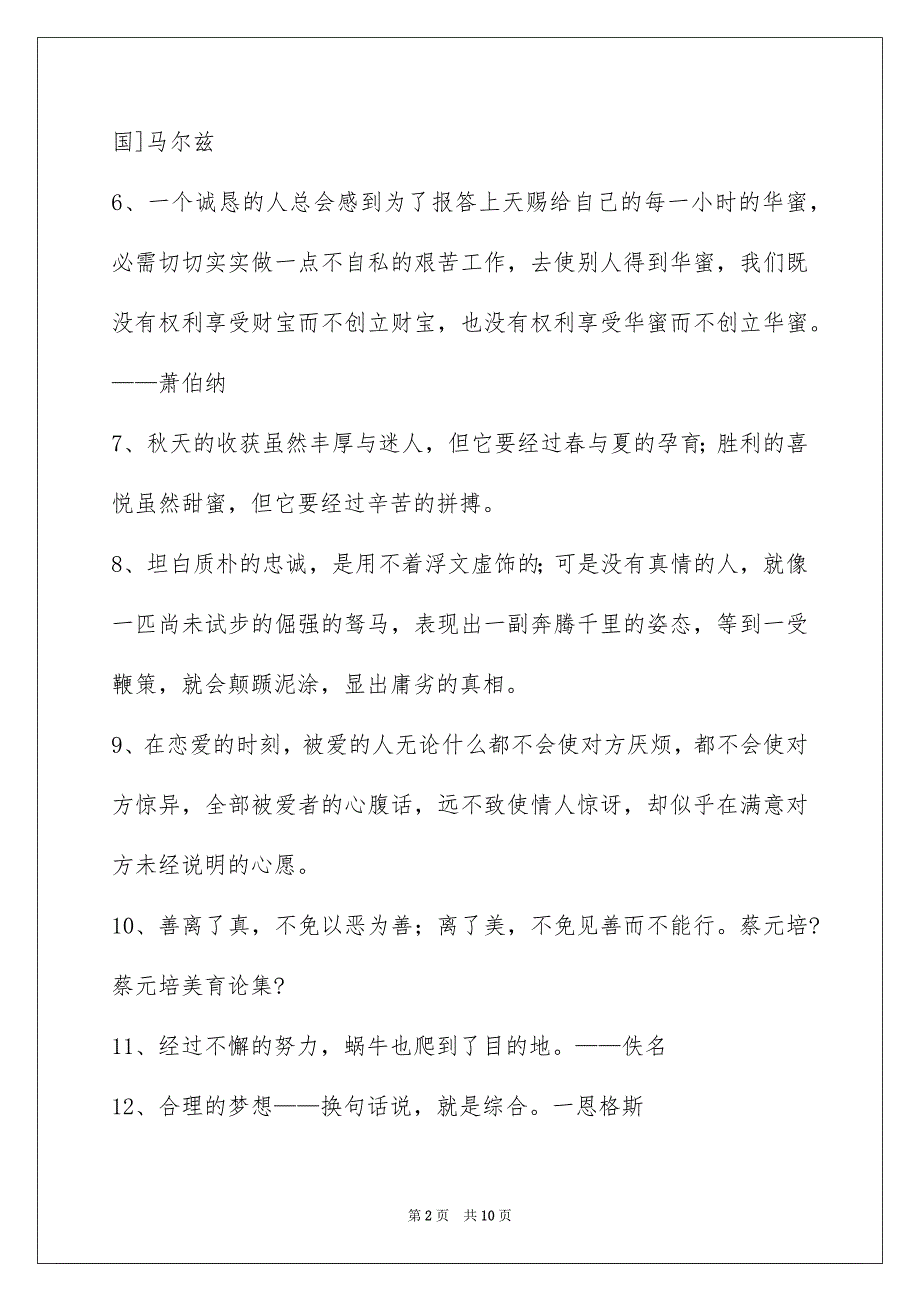 国]马尔兹
6、一个诚恳的人总会感到为了报答上天赐给自己的每一小时的华蜜，
必需切切实实做一点不自私的艰苦工作，去使别人得到华蜜，我们既
没有权利享受财宝而不创立财宝，也没有权利享受华蜜而不创立华蜜。
——萧伯纳
7、秋天的收获虽然丰厚与迷人，但它要经过春与夏的孕育；胜利的喜
悦虽然甜蜜，但它要经过辛苦的拼搏。
8、坦白质朴的忠诚，是用不着浮文虚饰的；可是没有真情的人，就像
一匹尚未试步的倔强的驽马，表现出一副奔腾千里的姿态，等到一受
鞭策，就会颠踬泥涂，显出庸劣的真相。
9、在恋爱的时刻，被爱的人无论什么都不会使对方厌烦，都不会使对
方惊异，全部被爱者的心腹话，远不致使情人惊讶，却似乎在满意对
方未经说明的心愿。
10、善离了真，不免以恶为善；离了美，不免见善而不能行。蔡元培?
蔡元培美育论集?
11、经过不懈的努力，蜗牛也爬到了目的地。——佚名
12、合理的梦想——换句话说，就是综合。一恩格斯
第 2 页 共 10 页